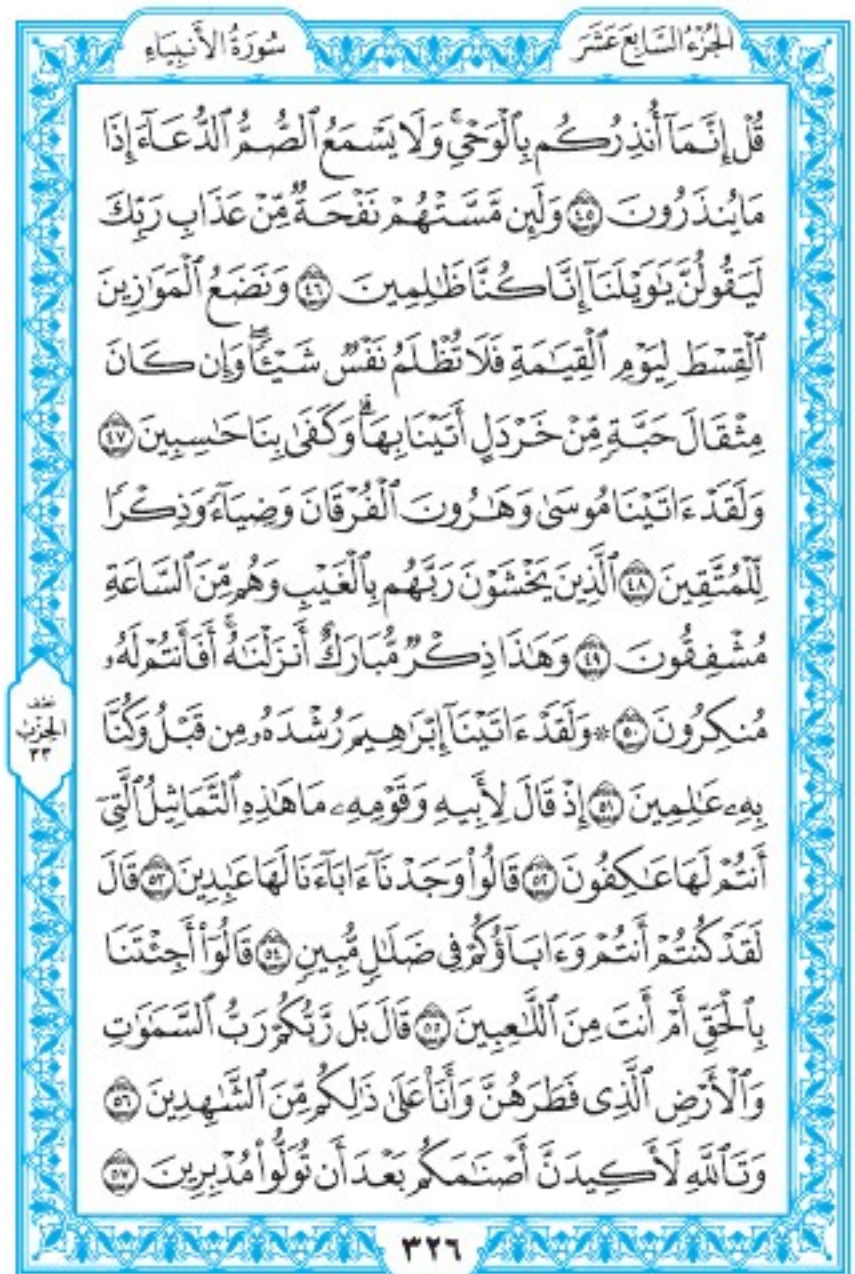 الجُزْءُ السَّابِعَ عَشَرَ
سُورَةُ الأَنبِيَاءِ
قُلۡ إِنَّمَآ أُنذِرُكُم بِٱلۡوَحۡيِۚ وَلَا يَسۡمَعُ ٱلصُّمُّ ٱلدُّعَآءَ إِذَا
مَا يُنذَرُونَ ٤٥ وَلَئِن مَّسَّتۡهُمۡ نَفۡحَةٌ مِّنۡ عَذَابِ رَبِّكَ
لَيَقُولُنَّ يَٰوَيۡلَنَآ إِنَّا كُنَّا ظَٰلِمِينَ ٤٦ وَنَضَعُ ٱلۡمَوَٰزِينَ
ٱلۡقِسۡطَ لِيَوۡمِ ٱلۡقِيَٰمَةِ فَلَا تُظۡلَمُ نَفۡسٌ شَيۡـًٔاۖ وَإِن كَانَ
مِثۡقَالَ حَبَّةٍ مِّنۡ خَرۡدَلٍ أَتَيۡنَا بِهَاۗ وَكَفَىٰ بِنَا حَٰسِبِينَ ٤٧
وَلَقَدۡ ءَاتَيۡنَا مُوسَىٰ وَهَٰرُونَ ٱلۡفُرۡقَانَ وَضِيَآءً وَذِكۡرًا
لِّلۡمُتَّقِينَ ٤٨ ٱلَّذِينَ يَخۡشَوۡنَ رَبَّهُم بِٱلۡغَيۡبِ وَهُم مِّنَ ٱلسَّاعَةِ
مُشۡفِقُونَ ٤٩ وَهَٰذَا ذِكۡرٌ مُّبَارَكٌ أَنزَلۡنَٰهُۚ أَفَأَنتُمۡ لَهُۥ
مُنكِرُونَ ٥٠ ۞وَلَقَدۡ ءَاتَيۡنَآ إِبۡرَٰهِيمَ رُشۡدَهُۥ مِن قَبۡلُ وَكُنَّا
بِهِۦ عَٰلِمِينَ ٥١ إِذۡ قَالَ لِأَبِيهِ وَقَوۡمِهِۦ مَا هَٰذِهِ ٱلتَّمَاثِيلُ ٱلَّتِيٓ
أَنتُمۡ لَهَا عَٰكِفُونَ ٥٢ قَالُواْ وَجَدۡنَآ ءَابَآءَنَا لَهَا عَٰبِدِينَ ٥٣ قَالَ
لَقَدۡ كُنتُمۡ أَنتُمۡ وَءَابَآؤُكُمۡ فِي ضَلَٰلٍ مُّبِينٍ ٥٤ قَالُوٓاْ أَجِئۡتَنَا
بِٱلۡحَقِّ أَمۡ أَنتَ مِنَ ٱللَّٰعِبِينَ ٥٥ قَالَ بَل رَّبُّكُمۡ رَبُّ ٱلسَّمَٰوَٰتِ
وَٱلۡأَرۡضِ ٱلَّذِي فَطَرَهُنَّ وَأَنَا۠ عَلَىٰ ذَٰلِكُم مِّنَ ٱلشَّٰهِدِينَ ٥٦
وَتَٱللَّهِ لَأَكِيدَنَّ أَصۡنَٰمَكُم بَعۡدَ أَن تُوَلُّواْ مُدۡبِرِينَ ٥٧
نصف
الحِزْب
٣٣
٣٢٦